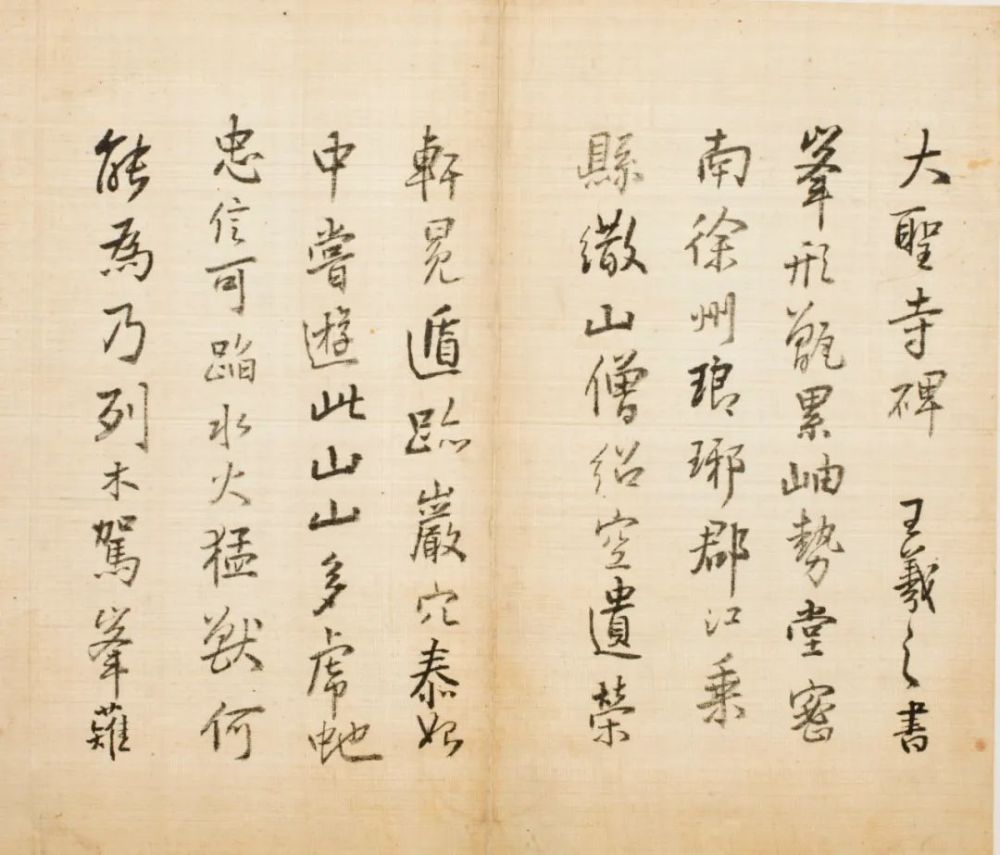 大聖寺碑 王羲之書
峯形甑累岫勢堂密
南徐州瑯琊郡江乗
縣繖山僧紹空遺榮
軒冕遁跡巖穴泰始
中嘗遊此山山多虎虵
忠信可蹈水火猛獸何
能為乃列木駕峯薙